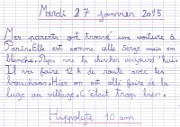 Mardi 27 janvier 2015
Mes parents ont trouvé une voiture à
Paris. Elle est comme celle Serge mais en
blanche. Papa va la chercher aujourd'hui.
Il va faire 12 h de route avec les
bouchons. Hier on est allé faire de la
luge au village. C'était trop bien.
Hippolyte 10 ans